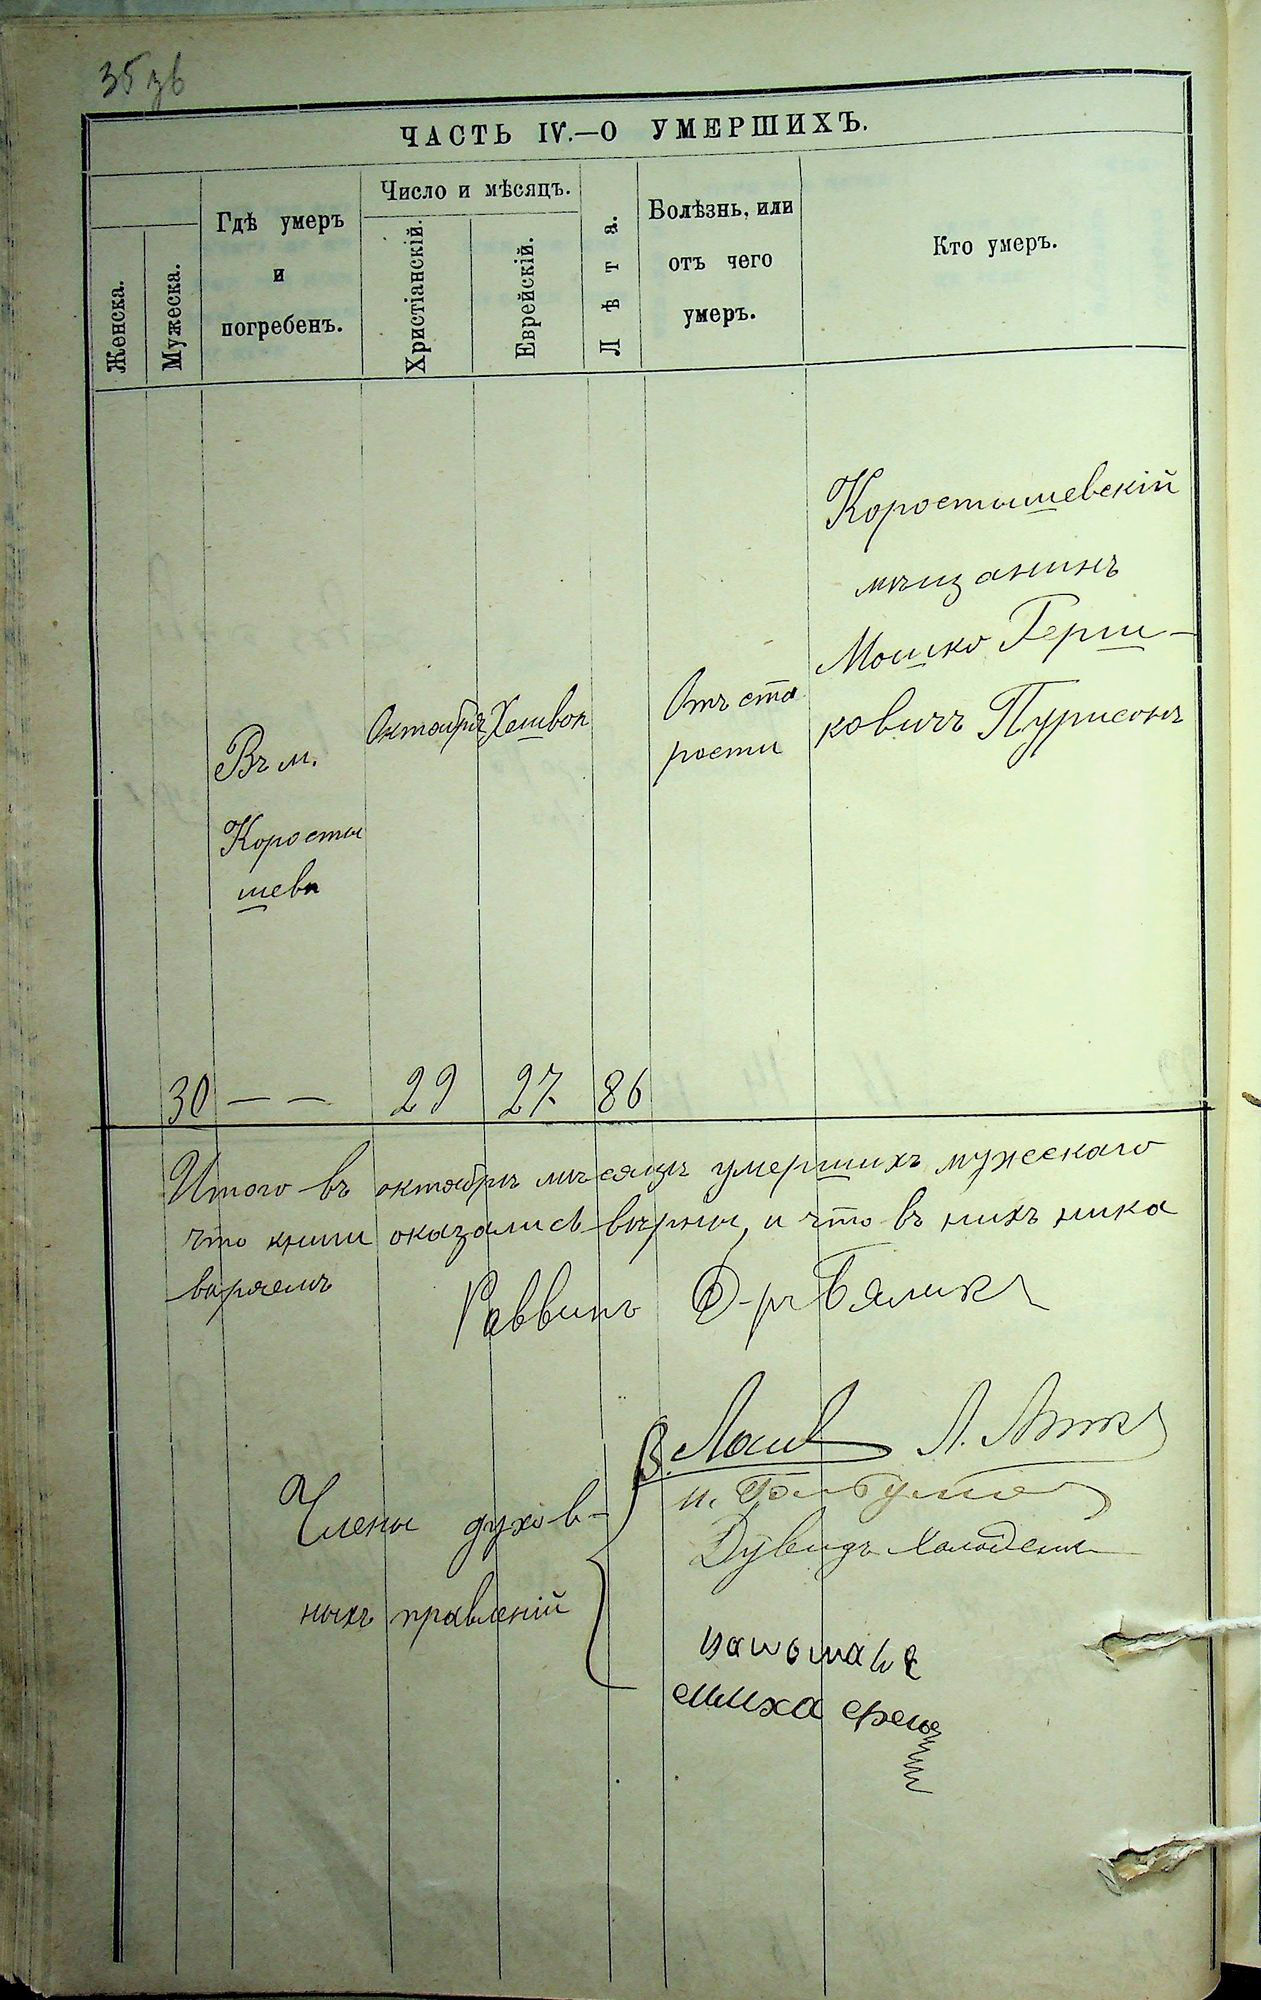 35 зв
ЧАСТЬ IV.—О УМЕРШИХЪ.
Женска.
Мужеска.
Гдѣ умеръ
и
погребенъ.
Число и мѣсяцъ.
Христіанскій.
Еврейскій.
Лѣта.
Болѣзнь, или
отъ чего
умеръ.
Кто умеръ.
Въ м.
Коросты
шевѣ
Октября
Хешвон
Отъ ста
рости
Коростышевскій
мѣщанинъ
Мошко Герш-
ковичъ Пурисонъ
30 — — 29 27. 86
Итого въ октябрѣ мѣсяцѣ умершихъ мужескаго
что книги оказались вѣрны, и что въ нихъ ника
варяемъ
Раввинъ Д-ръ Бяликъ
Члены духов-
ныхъ правленій
В.
Л.
И.
Дувидъ Холоденк